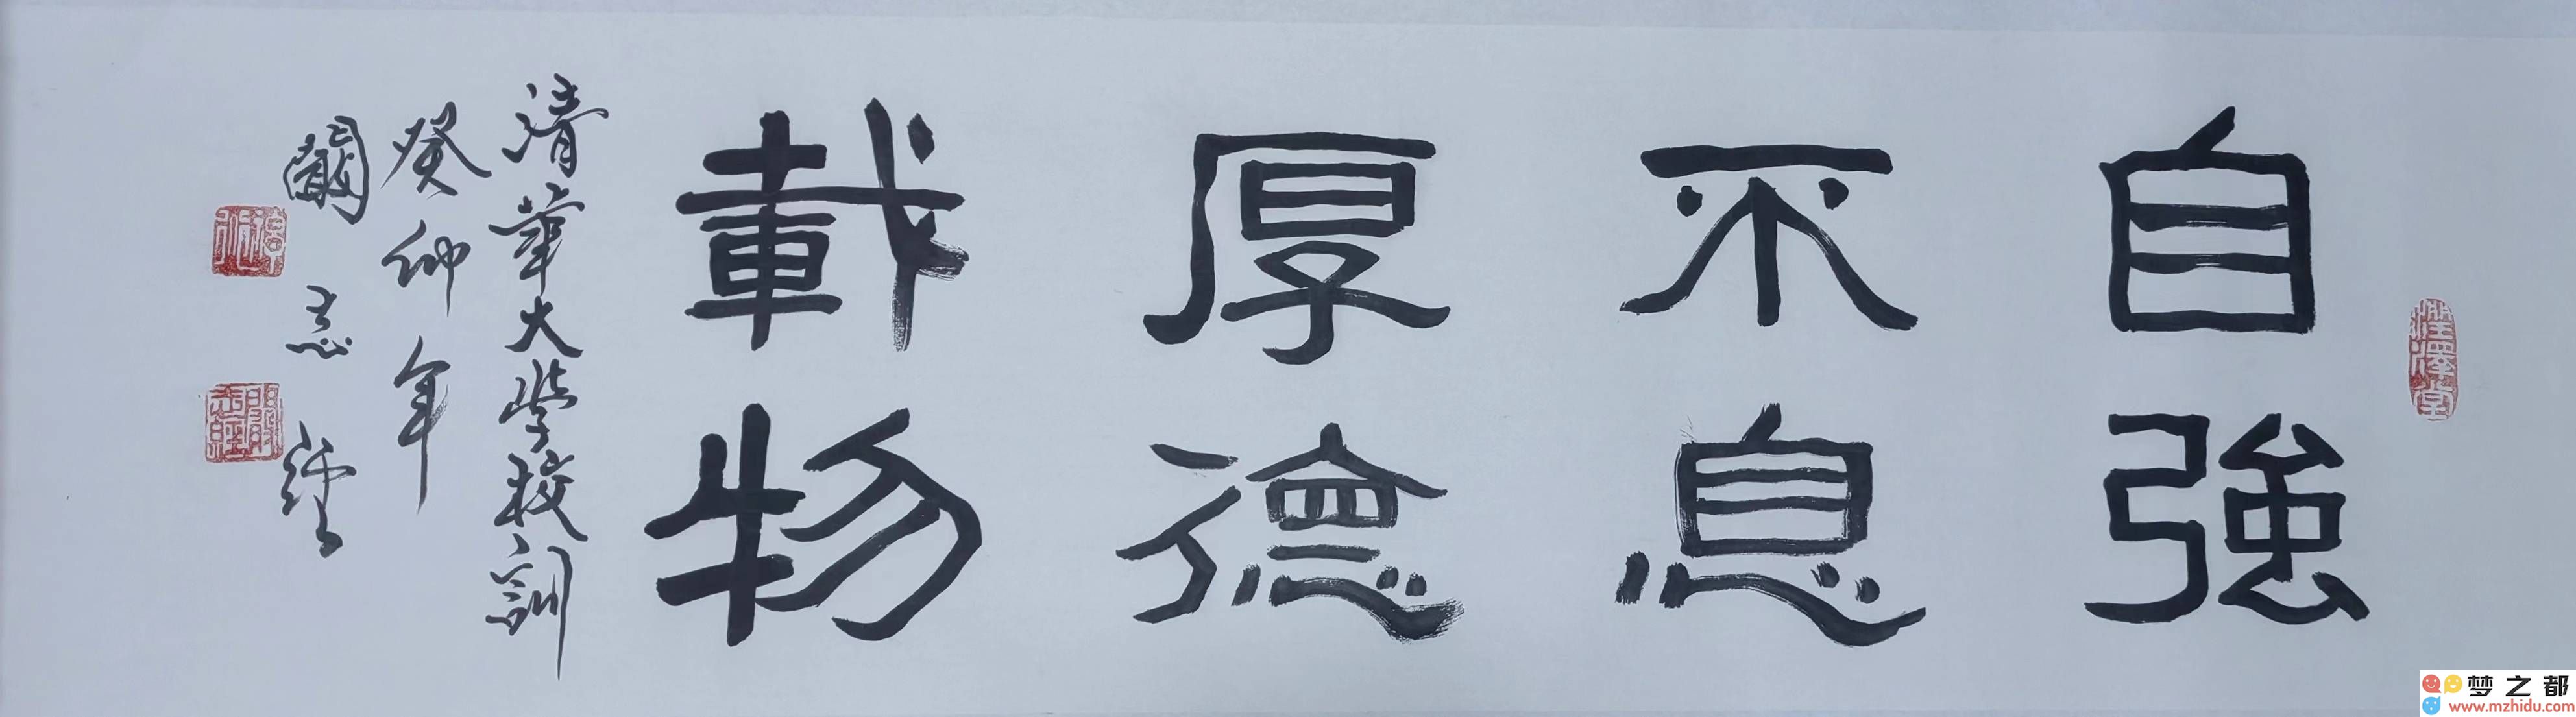 自強
不息
厚德
載物
清華大學校訓
癸卯年
關志經
梦之都
www.mzhidu.com